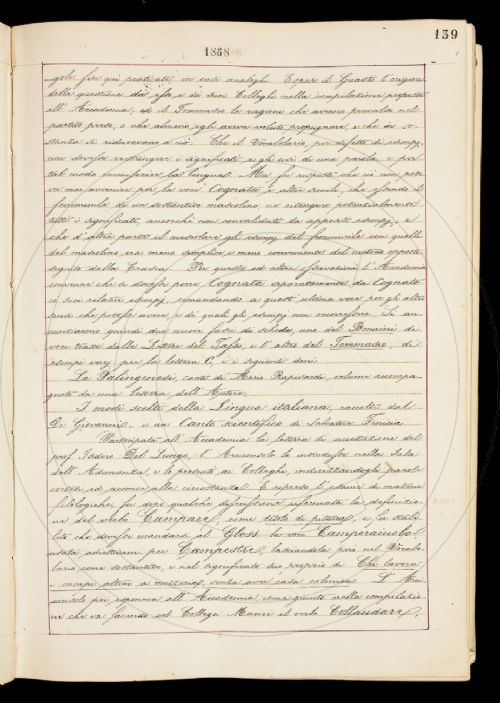 139
1868
gole fin qui praticate in casi analoghi. Espose il Guasti l'origine
della questione da esso e da suoi Colleghi nella compilazione proposta
all'Accademia, ed il Tommaseo le ragioni che aveano prevalso nel
partito preso, o che almeno egli aveva voluto propugnare, e che in so-
stanza si riducevano a ciò: Che il Vocabolario, per difetto di esempj,
non dovesse restringere i significati e gli usi di una parola, e per
tal modo la lingua. Ma fu risposto che ciò non pote-
va mai avvenire per la voce Cognata e altre simili, che essendo il
femminile di un sustantivo mascolino, ne ritengono potenzialmente
tutti i significati, ancorchè non convalidati da apposti esempj; e
che d'altra parte il mescolare gli esempj del femminile con quelli
del mascolino era meno semplice e meno conveniente del metodo opposto
seguito dalla Crusca. Per queste ed altre osservazioni l'Accademia
convenne che si dovesse porre Cognata separatamente da Cognato
co' suoi relativi esempj, rimandando a quest'ultima voce per gli altri
sensi che potesse avere, e di quali gli esempj non occorressero. Si an-
nunziarono quindi due nuove filze di schede, una del Bonaini di
voci tratte dalle Lettere del Tasso, e l'altra del Tommaseo, di
esempi varj per la lettera C, e i seguenti doni:
La Palingenesi, canti di Mario Rapisardi, volume accompa-
gnato da una lettera dell'Autore.
I modi scelti della Lingua italiana, raccolti dal
De Giovannis, e un Canto scientifico di Salvatore
Partecipata all'Accademia la lettera di accettazione del
prof. Isidoro Del Lungo, l'Arciconsolo lo introdusse nella Sala
dell'Adunanza, e lo presentò ai Colleghi, indirizzandogli parole
cortesi ed acconce alla circostanza. E ripreso l'esame di materie
filologiche, fu dopo qualche discussione riformata la definizio-
ne del verbo Campare, come titolo di pittura, e fu stabi-
lito che dovesse mandarsi al Gloss. la voce Camperaiuolo
usata addiettivam. per Campestre, lasciandola però nel Vocabo-
lario come sustantivo, e nel significato suo proprio di Chi lavora
i campi altrui a mezzeria, senza aver casa colonica. L'Arci-
consolo poi esponeva all'Accademia, come giunto nella compilazio-
ne che va facendo col Collega Mauri al verbo Collaudare,